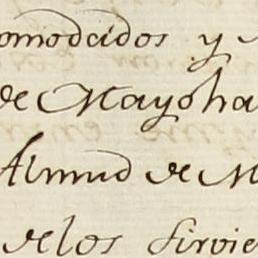 omodados y
de Mayo ha
Almud de M
de los sirvie